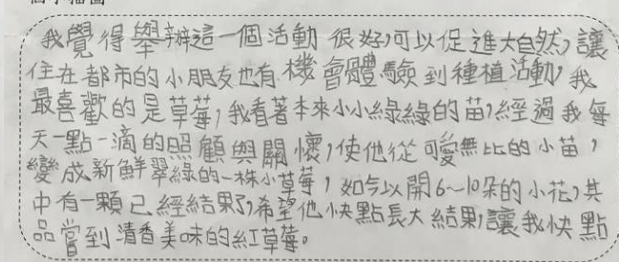 我覺得舉辦這一個活動很好,可以促進大自然,讓
住在都市的小朋友也有機會體驗到種植活動,我
最喜歡的是草莓,我看著本來小小綠綠的苗,經過我每
天一點一滴的照顧與關懷,使他從可愛無比的小苗,
變成新鮮翠綠的一株小草莓,如今以開6~10朵的小花,其
中有一顆已經結果了,希望他快點長大結果,讓我快點
品嘗到清香美味的紅草莓。